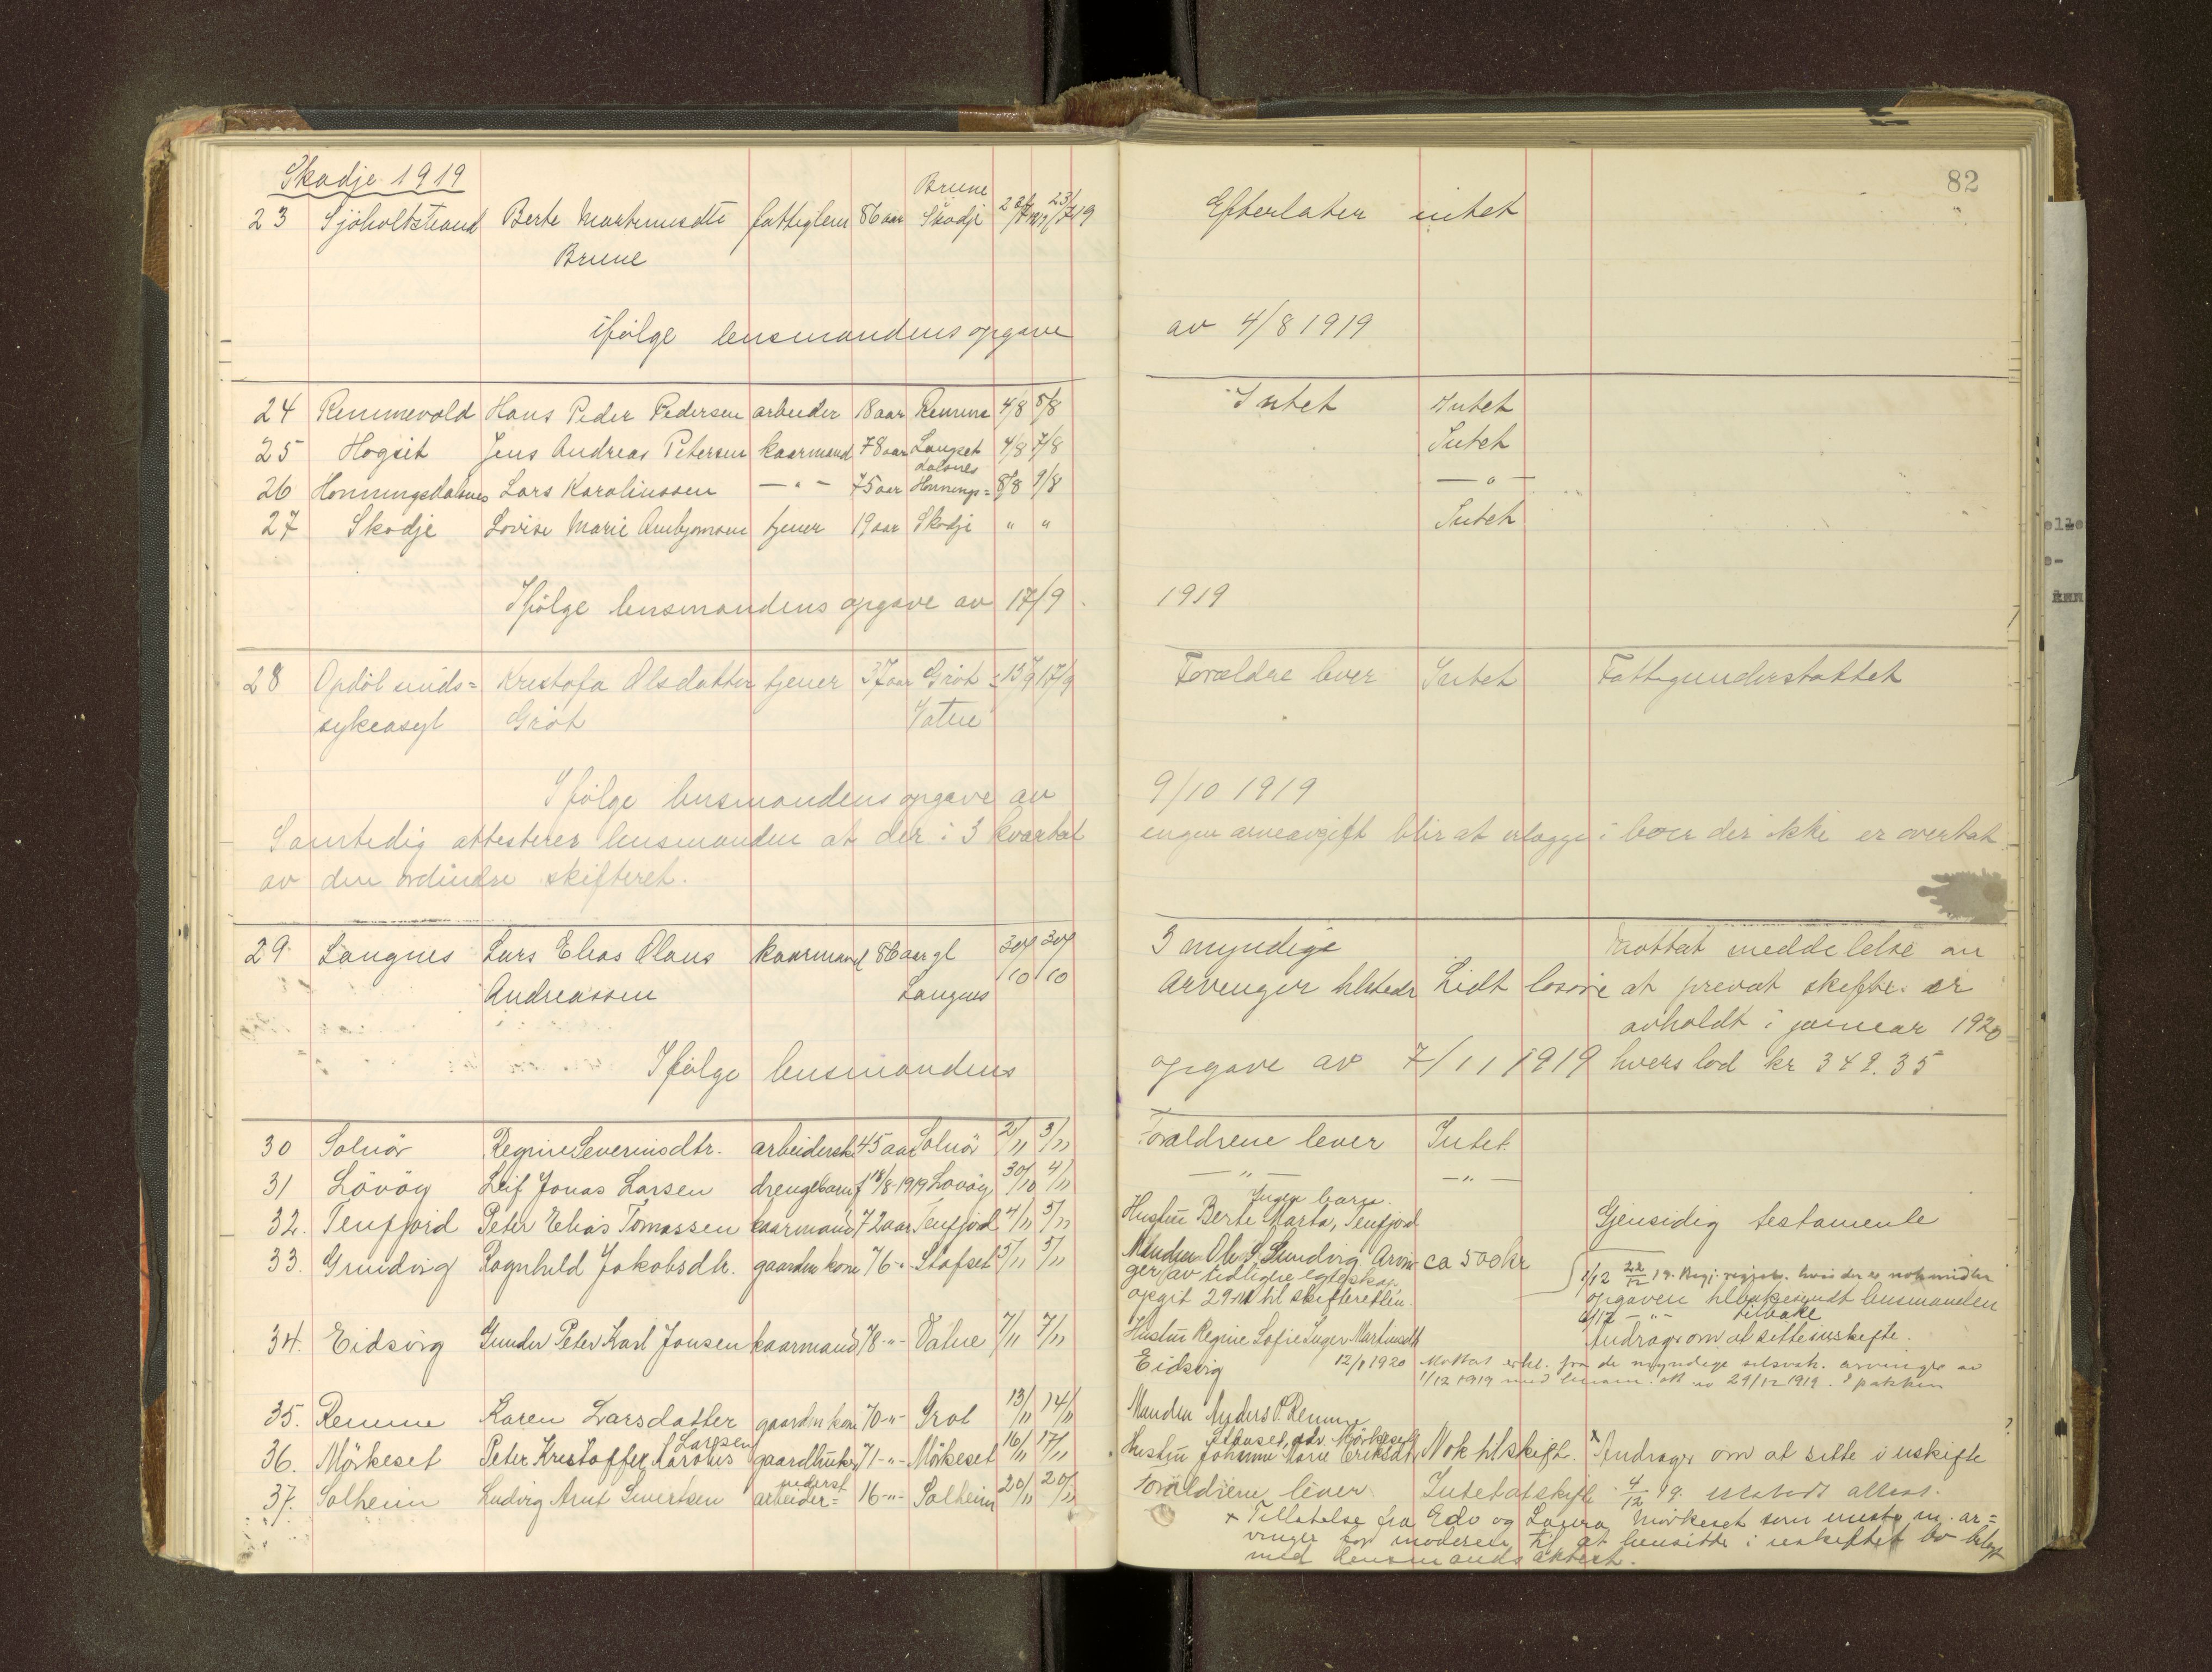 82
Skodje 1919
23 Sjøholtstrand Berte Martinusdtr fattiglem 86 aar Brune Skodje 22/7 1919 23/7 19 Efterlater intet
Brune
ifølge lensmandens opgave av 4/8 1919
24 Remmevold Hans Peder Pedersen arbeider 18 aar Remme 4/8 8/8 Intet Intet
25 Hogset Jens Andreas Petersen kaarmand 78 aar Langset 4/8 7/8 Intet
26 Honningsdalsnes Lars Karolinssen — " — 75 aar Honnings= dalsnes 8/8 9/8 — " —
27 Skodje Lovise Marie tjener 19 aar Skodje " " Intet
Ifølge lensmandens opgave av 17/9 1919
28 Opdøl sinds= Kristofa Olsdatter tjener 37 aar Grøt = 13/9 17/9 Forældre lever Intet Fattigunderstøttet
sykeasyl Grøt Vatne
Ifølge lensmandens opgave av 9/10 1919
Samtidig attesterer lensmanden at der i 3 kvartal engen arveavgift blir at erlægge i boer der ikke er overtat
av den ordinære skifteret.
29 Langnes Lars Elias Olaus kaarmand 86 aar gl 30/10 30/10 3 myndige Mottat meddelelse om
Andreassen Langnes arvenger tilstede Lidt løsøre at prevat skefte er
avholdt i januar 1920
Ifølge lensmandens opgave av 7/11 1919 hvers lod kr 349.35
30 Solnør Regine Severinsdtr. arbeidersk 45 aar Solnør 2/11 3/11 Forældrene lever Intet
31 Løvøy Leif Jonas Larsen drengebarn f 18/8-1919 Løvøy 30/10 4/11 — " — — " —
Ingen barn.
32. Tenfjord Peter Elias Tomassen kaarmand 72 aar Tenfjord 4/11 5/11 Hustru Berte Marta, Tenfjord Gjensidig testamente
33. Grindvig Ragnhild Jakobsdtr. gaardm kone 76 -"- Stafset 5/11 5/11 Manden Ole S. Arvin= ca 500 kr
ger av tidligere egteskap 1/12 22/12 19. hvis der er nok midler
opgit 29/11 til skifteretten. opgaven tilbakesendt lensmanden
tilbake
34. Eidsvig Gunder Peter Karl Jonsen kaarmand 78 -"- Vatne 7/11 7/11 Hustru Regine Sofie Inger Martinsdtr Andrager om at sitte i uskifte.
Eidsvig 12/1 1920 Mottat erkl. fra de myndige arvinger av
1/12 1919 med 29/12 1919. I pakken
35. Remme Karen Larsdatter gaardm kone 70 -"- Grøt 13/11 14/11 Manden Anders P. Remme
36. Mørkeset Peter Kristoffer Karolus Larssen gaardbruker 71 -"- Mørkeset 16/11 17/11 Hustru Johanne Marie Eriksdtr Nok til skifte. x Andrager om at sitte i uskifte
37. Solheim Ludvig Arnt Sivertsen arbeider= 16 -"- Solheim 20/11 20/11 Forældrene lever Intet at skifte 4/12 19.
x Tillatelse fra Edv og Laura Mørkeset som eneste m. ar=
vinger for moderen til at hensitte i uskiftet bo
med lensmandsattest.